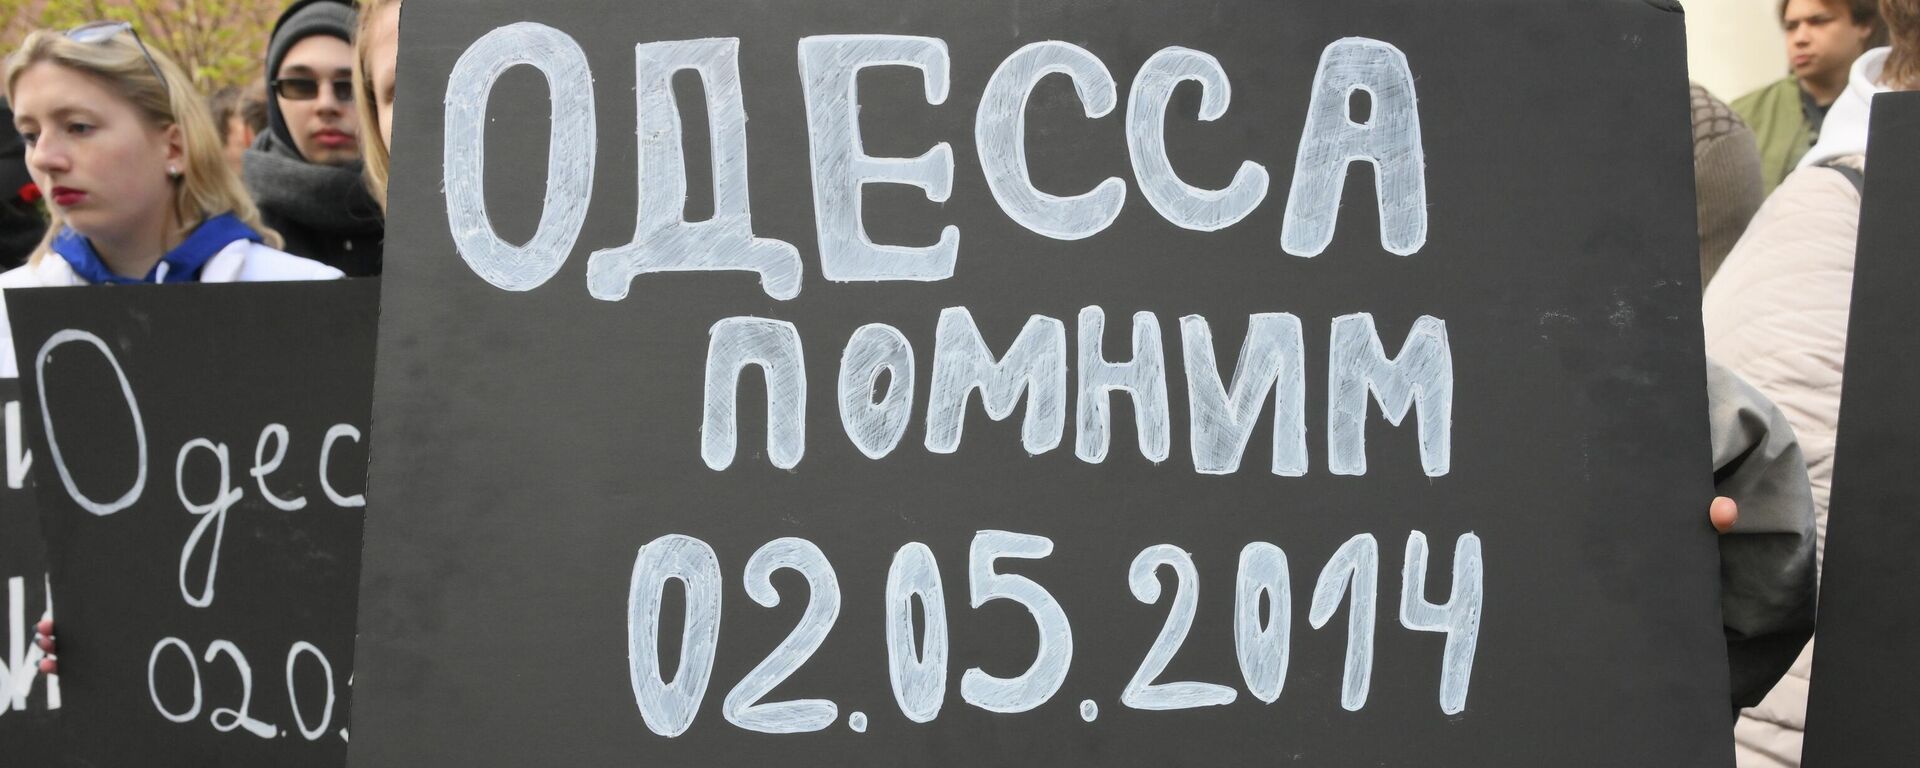 ОДЕССА
ПОМНИМ
02.05.2014
Одес
02.0